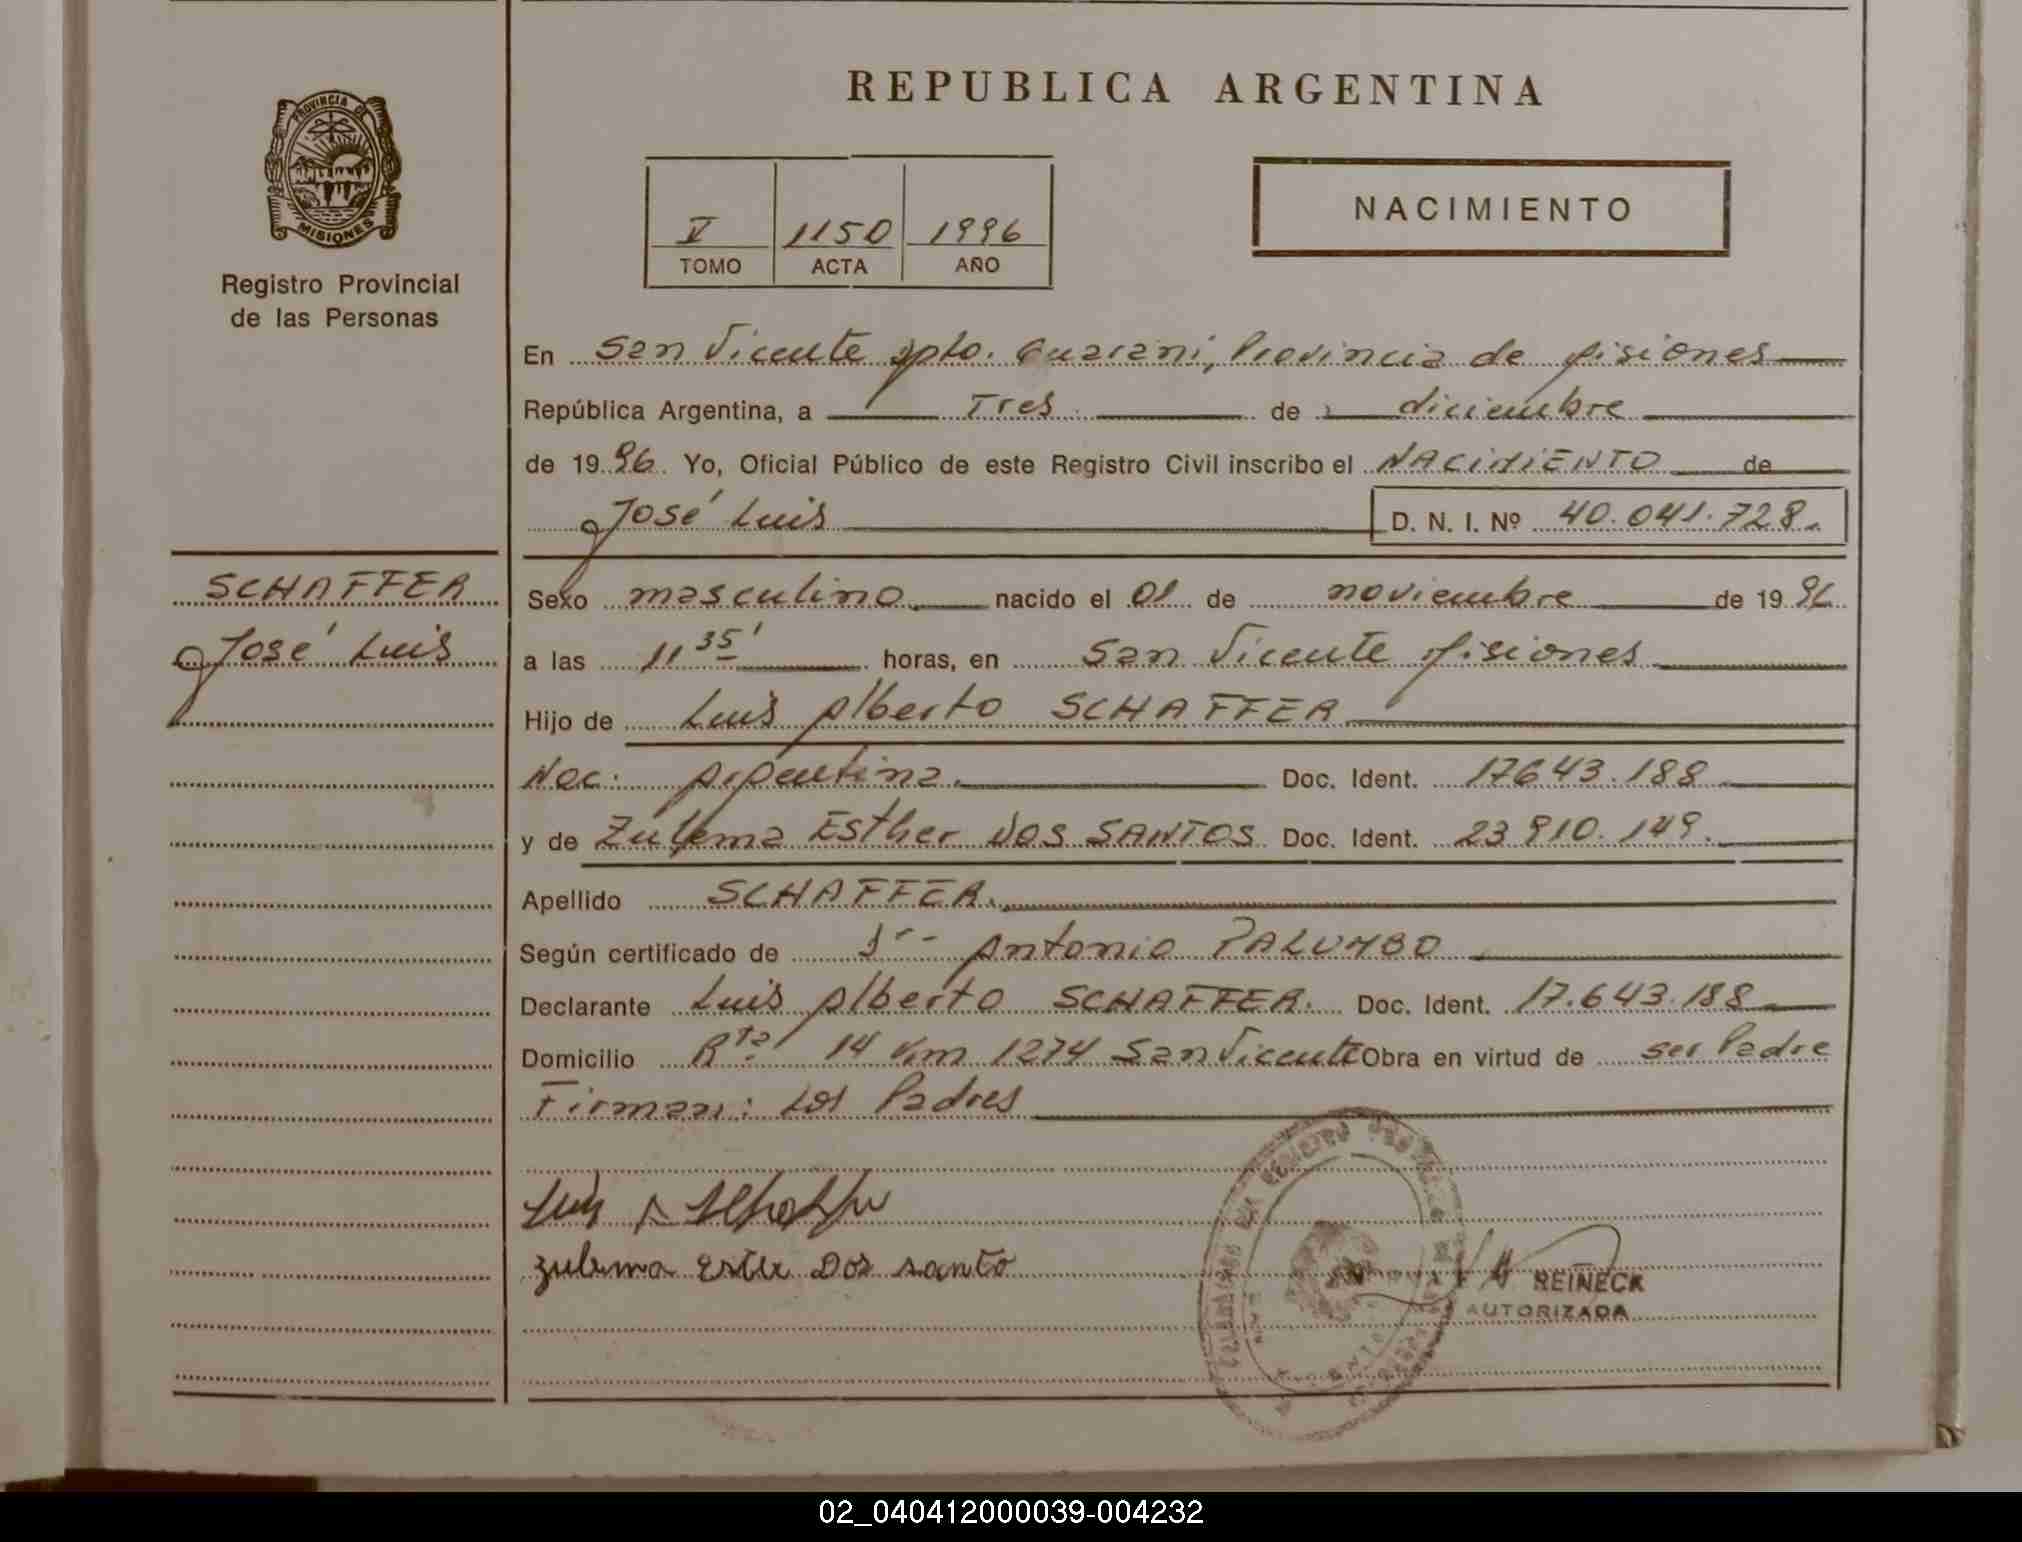 REPUBLICA ARGENTINA
PROVINCIA DE
MISIONES
Registro Provincial
de las Personas
V 1150 1996
TOMO ACTA AÑO
NACIMIENTO
En San Vicente Dpto. Guarani, Provincia de Misiones
República Argentina, a Tres de diciembre
de 1996. Yo, Oficial Público de este Registro Civil inscribo el NACIMIENTO de
José Luis D. N. I. Nº 40.041.728.
SCHAFFER
José Luis
Sexo masculino. nacido el 01 de noviembre de 1996
a las 11 35' horas, en San Vicente Misiones
Hijo de Luis Alberto SCHAFFER
Nac: Argentina. Doc. Ident. 17643.188
y de Zulema Esther DOS SANTOS Doc. Ident. 23910.149.
Apellido SCHAFFER.
Según certificado de Antonio PALUMBO
Declarante Luis Alberto SCHAFFER. Doc. Ident. 17.643.188
Domicilio Rta 14 Km 1274 San Vicente Obra en virtud de ser Padre
Firman: Los Padres
Luis A
Zulema Ester Dos santo
REINECK
AUTORIZADA
02_040412000039-004232